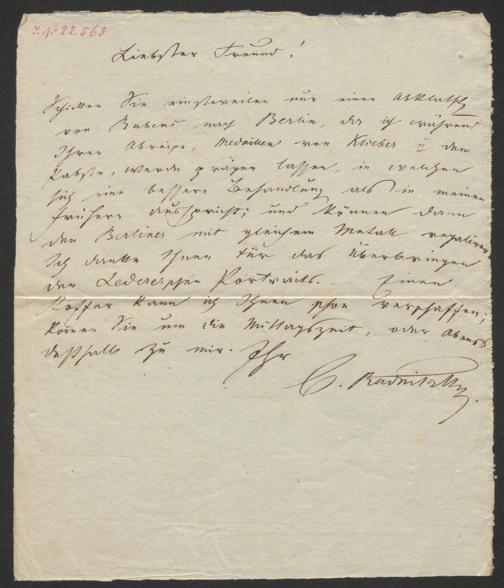 I.N. 22.563
Liebster Freund!
Schicken Sie einstweilen nur einen Abklatsch
von Rubens nach Berlin, da ich während
Ihrer Abreise, Medaillen von Klieber u dem
Pabste, werde prägen lassen, in welchen
sich eine bessere Behandlung als in meinen
frühern ausspricht; und können dann
den Berliner mit gleichem Metall regaliren
Ich danke Ihnen für das Überbringen
der Portraits. Einen
Koffer kann ich Ihnen schon verschaffen;
kommen Sie um die Mittagszeit, oder Abends
deßhalb zu mir. Ihr
C. Radnitzky.